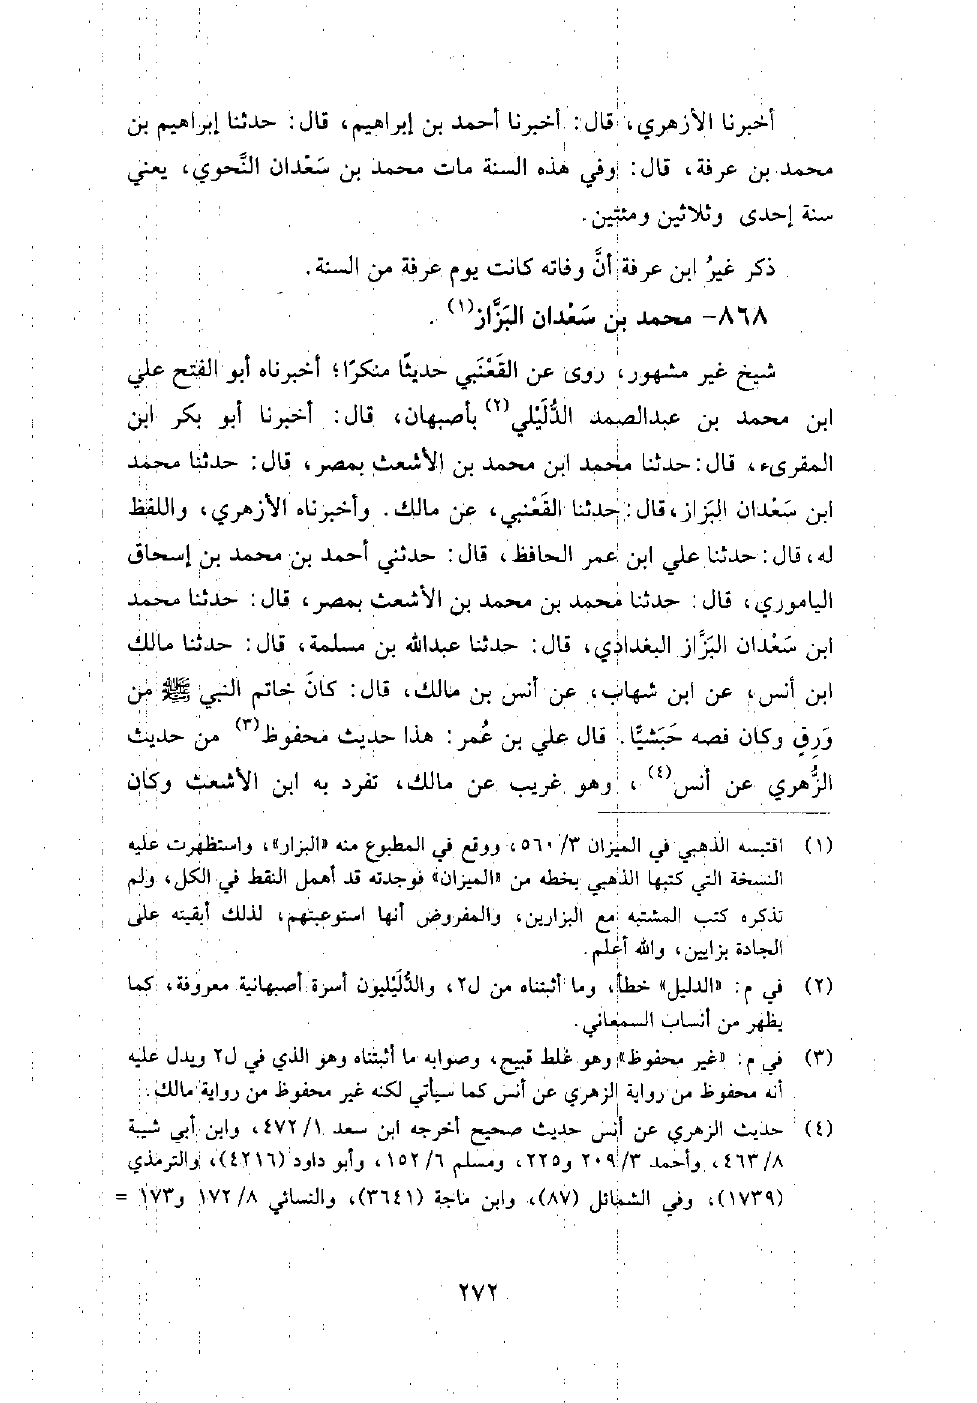 أخبرنا الأزهري، قال: أخبرنا أحمد بن إبراهيم، قال: حدثنا إبراهيم بن
محمد بن عرفة، قال: وفي هذه السنة مات محمد بن سَعْدان النَّحوي، يعني
سنة إحدى وثلاثين ومئتين.
ذكر غيرُ ابن عرفة أنَّ وفاته كانت يوم عرفة من السنة.
٨٦٨- محمد بن سَعْدان البَزَّاز(١) .
شيخ غير مشهور، روى عن القَعْنَبي حديثًا منكرًا؛ أخبرناه أبو الفتح علي
ابن محمد بن عبدالصمد الدُّلَيْلي(٢) بأصبهان، قال: أخبرنا أبو بكر ابن
المقرىء، قال: حدثنا محمد ابن محمد بن الأشعث بمصر، قال: حدثنا محمد
ابن سَعْدان البَزاز، قال: حدثنا القَعْنبي، عن مالك. وأخبرناه الأزهري، واللفظ
له، قال: حدثنا علي ابن عمر الحافظ، قال: حدثني أحمد بن محمد بن إسحاق
الياموري، قال: حدثنا محمد بن محمد بن الأشعث بمصر، قال: حدثنا محمد
ابن سَعْدان البَزَّاز البغدادي، قال: حدثنا عبدالله بن مسلمة، قال: حدثنا مالك
ابن أنس، عن ابن شهاب، عن أنس بن مالك، قال: كانَ خاتم النبي ﷺ من
وَرِقٍ وكان فصه حَبَشيًّا. قال علي بن عُمر: هذا حديث محفوظ(٣) من حديث
الزُّهري عن أنس(٤) ، وهو غريب عن مالك، تفرد به ابن الأشعث وكان
(١) اقتبسه الذهبي في الميزان ٣/ ٥٦٠، ووقع في المطبوع منه «البزار»، واستظهرت عليه
النسخة التي كتبها الذهبي بخطه من «الميزان» فوجدته قد أهمل النقط في الكل، ولم
تذكره كتب المشتبه مع البزارين، والمفروض أنها استوعبتهم، لذلك أبقيته على
الجادة بزايين، والله أعلم.
(٢) في م: «الدليل» خطأ، وما أثبتناه من ل٢، والدُّلَيْليون أسرة أصبهانية معروفة، كما
يظهر من أنساب السمعاني.
(٣) في م: «غير محفوظ» وهو غلط قبيح، وصوابه ما أثبتناه وهو الذي في ل٢ ويدل عليه
أنه محفوظ من رواية الزهري عن أنس كما سيأتي لكنه غير محفوظ من رواية مالك.
(٤) حديث الزهري عن أنس حديث صحيح أخرجه ابن سعد ١/ ٤٧٢، وابن أبي شيبة
٨/ ٤٦٣، وأحمد ٣/ ٢٠٩ و٢٢٥، ومسلم ٦/ ١٥٢، وأبو داود (٤٢١٦)، والترمذي
(١٧٣٩)، وفي الشمائل (٨٧)، وابن ماجة (٣٦٤١)، والنسائي ٨/ ١٧٢ و١٧٣ =
٢٧٢